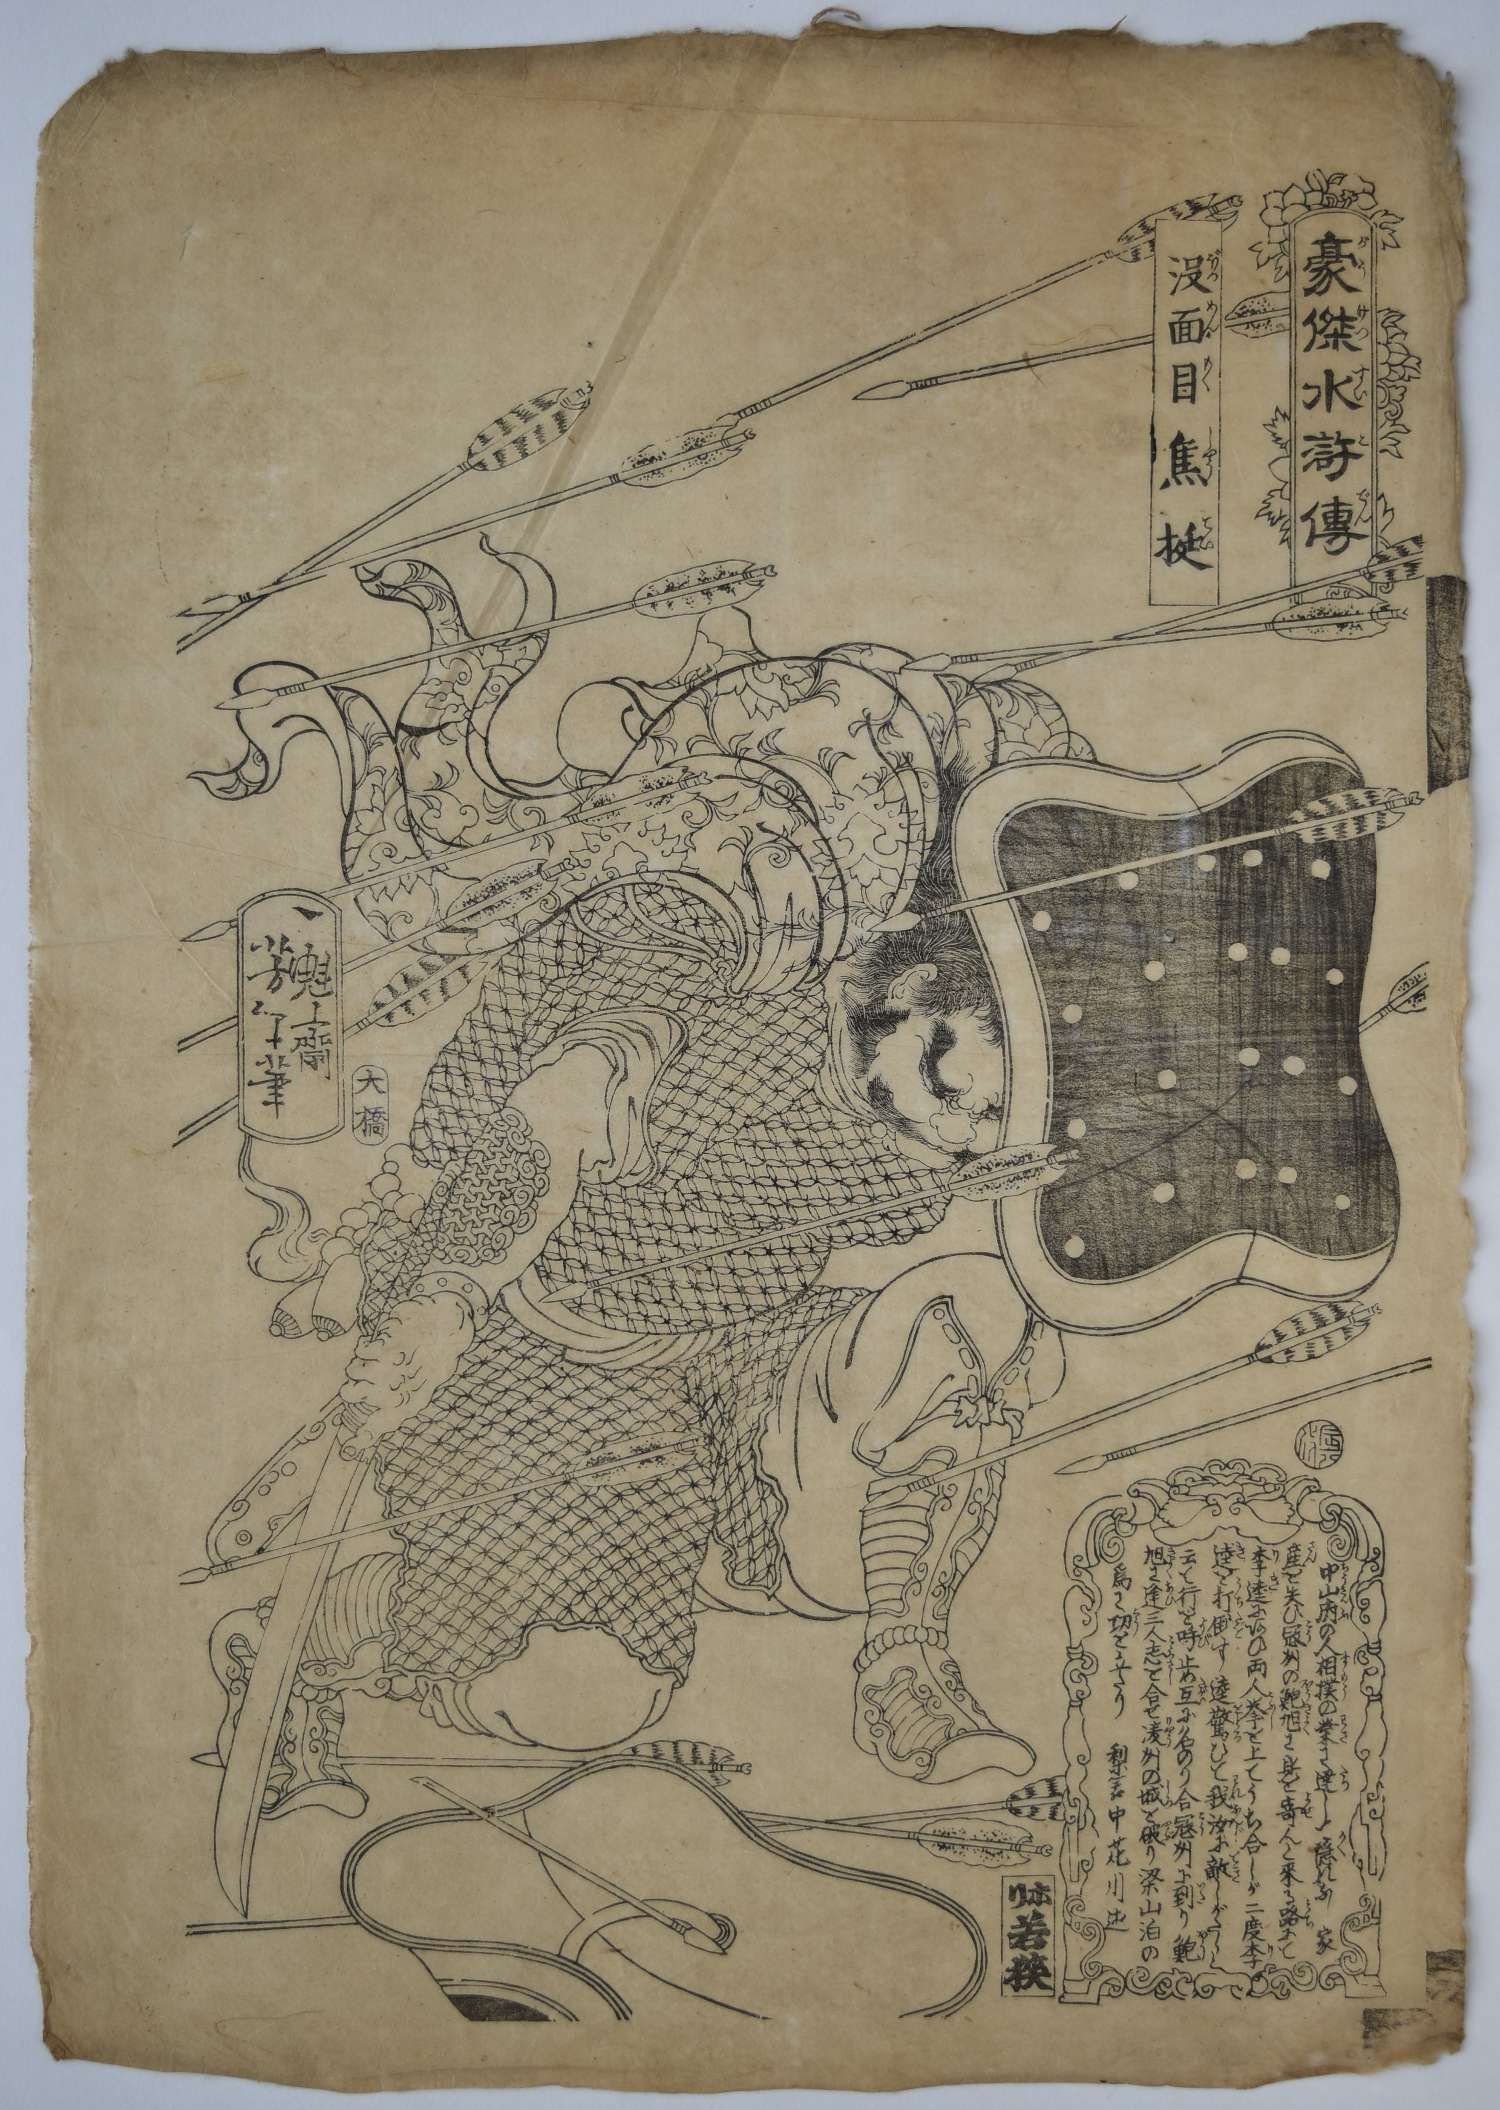 豪傑水滸傳
ごうけつすいこでん
没面目焦挺
ぼつめんもくしやうてい
一魁齋
芳年筆
大橋
中山府の人相撲の拳に達し
産を失ひ冦州の鮑旭に身を寄んと来る路にて
李逵に逢ひ両人拳を上てうち合しが二度李
逵を打倒す逵驚ひて我汝に敵しがたしと
云て行を呼止め互に名のり合冦州に到り鮑
旭に逢三人志を合せ凌州の城を破り梁山泊の
為に功をなせり
中花川述
若狹